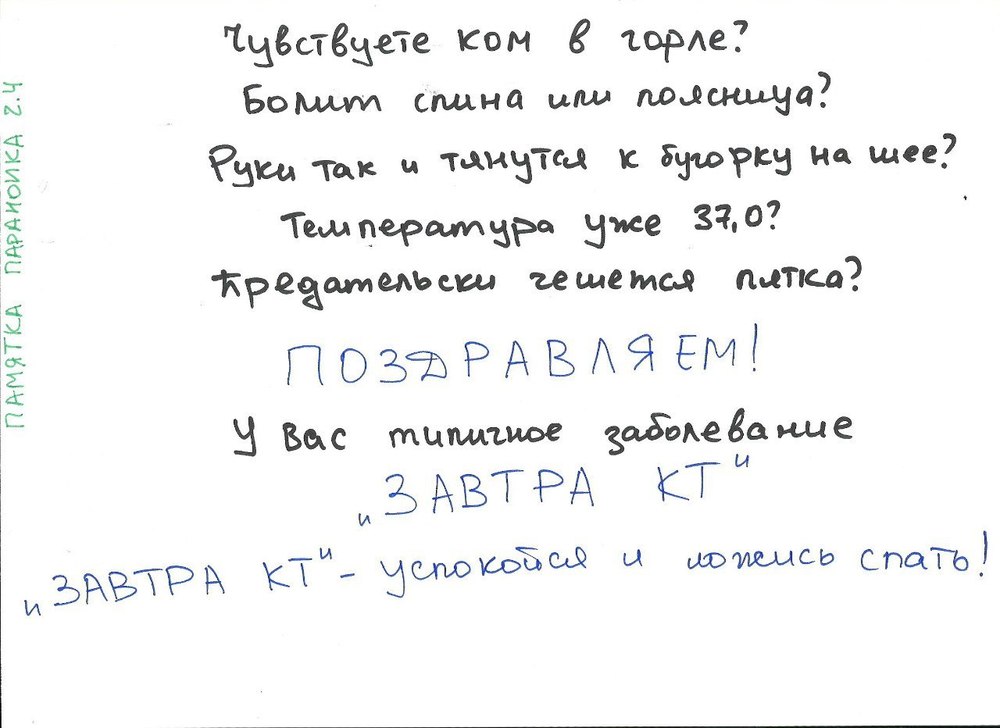 Чувствуете ком в горле?
Болит спина или поясница?
Руки так и тянутся к бугорку на шее?
Температура уже 37,0?
Предательски чешется пятка?
ПОЗДРАВЛЯЕМ!
У Вас типичное заболевание
"ЗАВТРА КТ"
"ЗАВТРА КТ" - успокойся и ложись спать!
ПАМЯТКА ПАРАНОИКА 2.Ч